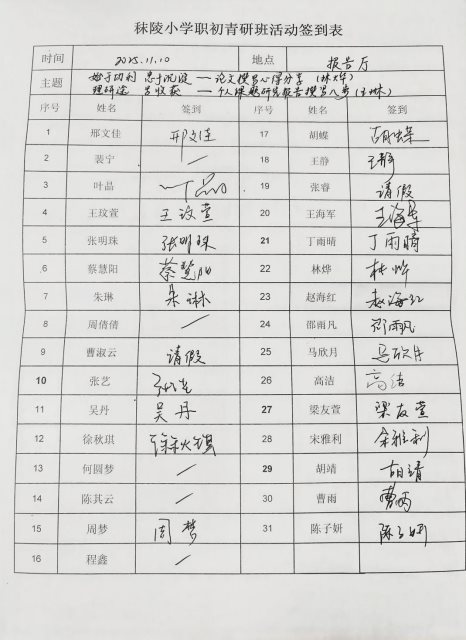 秣陵小学职初青研班活动签到表
时间 2025.11.10 地点 报告厅
主题 始于功利 忠于沉淀 —— 论文撰写心得分享 (林烨)
—— 个人课题研究报告撰写 (王琳)
序号 姓名 签到 序号 姓名 签到
1 邢文佳 邢文佳 17 胡蝶 胡蝶
2 裴宁 / 18 王静 王静
3 叶晶 叶晶 19 张睿 请假
4 王玟萱 王玟萱 20 王海军 王海军
5 张明珠 张明珠 21 丁雨晴 丁雨晴
6 蔡慧阳 蔡慧阳 22 林烨 林烨
7 朱琳 朱琳 23 赵海红 赵海红
8 周倩倩 / 24 邵雨凡 邵雨凡
9 曹淑云 请假 25 马欣月 马欣月
10 张艺 26 高洁 高洁
11 吴丹 吴丹 27 梁友萱 梁友萱
12 徐秋琪 徐秋琪 28 宋雅利 宋雅利
13 何圆梦 / 29 胡靖 胡靖
14 陈其云 / 30 曹雨 曹雨
15 周梦 周梦 31 陈子妍 陈子妍
16 程鑫 /